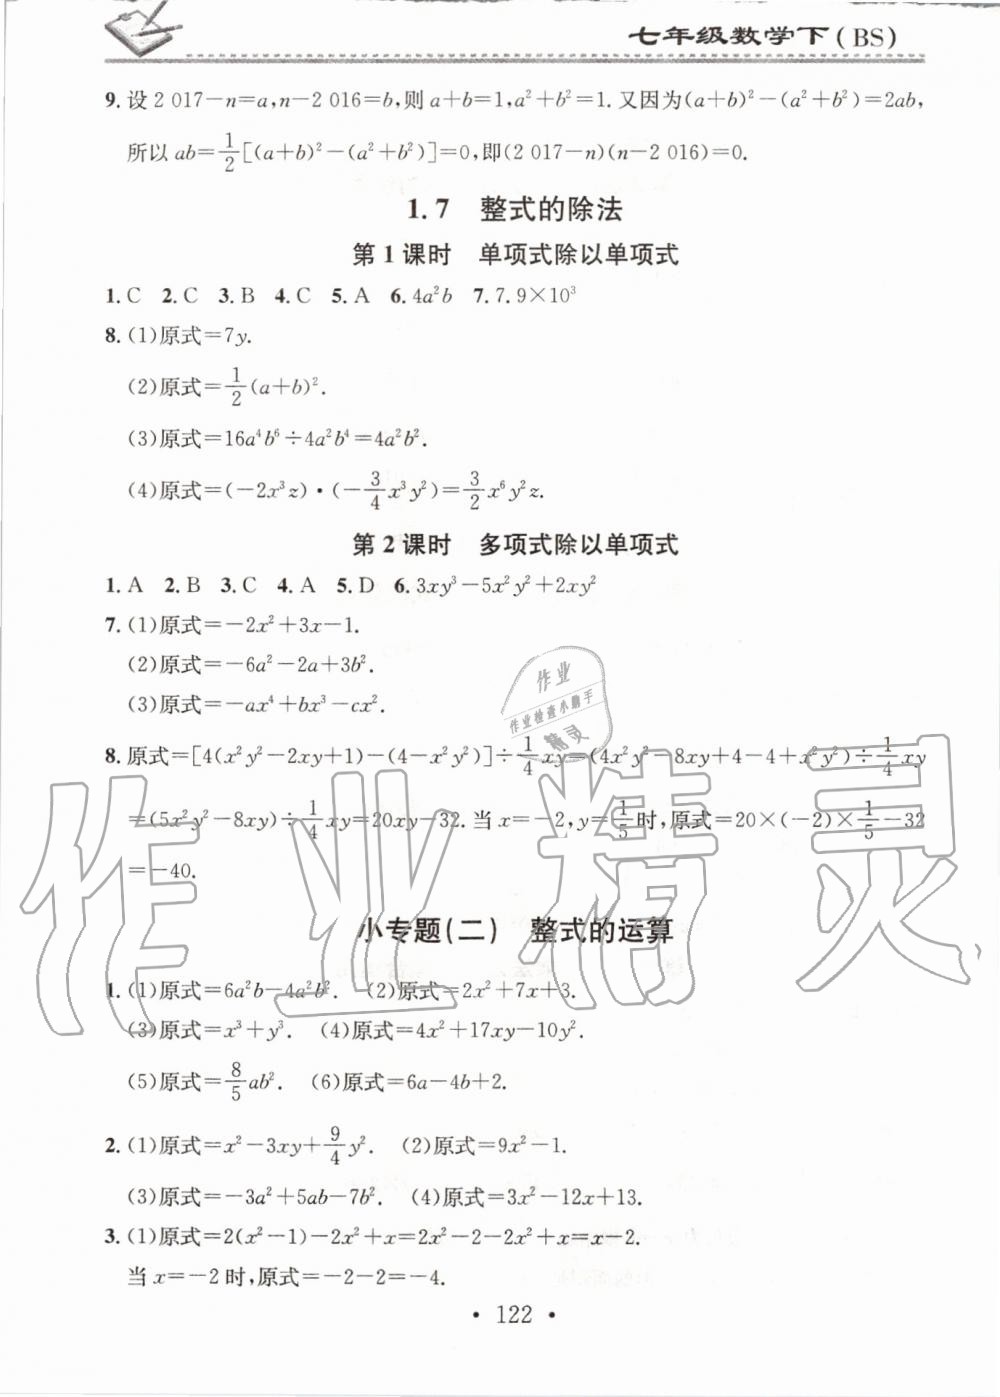 七年级数学下(BS)
9. 设2 017－n=a,n－2 016=b,则a+b=1,a²+b²=1.又因为(a+b)²－(a²+b²)=2ab,
所以ab=1/2[(a+b)²－(a²+b²)]=0,即(2 017－n)(n－2 016)=0.
1.7 整式的除法
第1课时 单项式除以单项式
1. C 2. C 3. B 4. C 5. A 6. 4a²b 7. 7.9×10³
8. (1)原式=7y.
(2)原式=1/2(a+b)².
(3)原式=16a⁴b⁶÷4a²b⁴=4a²b².
(4)原式=(－2x³z)·(－3/4x³y²)=3/2x⁶y²z.
第2课时 多项式除以单项式
1. A 2. B 3. C 4. A 5. D 6. 3xy³－5x²y²+2xy²
7. (1)原式=－2x²+3x－1.
(2)原式=－6a²－2a+3b².
(3)原式=－ax⁴+bx³－cx².
作业
作业检查小助手
精灵
8. 原式=[4(x²y²－2xy+1)－(4－x²y²)]÷1/4xy=(4x²y²－8xy+4－4+x²y²)÷1/4xy
=(5x²y²－8xy)÷1/4xy=20xy－32.当x=－2,y=1/5时,原式=20×(－2)×1/5－32
=－40.
作业精灵
小专题(二) 整式的运算
1. (1)原式=6a²b－4a²b². (2)原式=2x²+7x+3.
(3)原式=x³+y³. (4)原式=4x²+17xy－10y².
(5)原式=8/5ab². (6)原式=6a－4b+2.
2. (1)原式=x²－3xy+9/4y². (2)原式=9x²－1.
(3)原式=－3a²+5ab－7b². (4)原式=3x²－12x+13.
3. (1)原式=2(x²－1)－2x²+x=2x²－2－2x²+x=x－2.
当x=－2时,原式=－2－2=－4.
· 122 ·